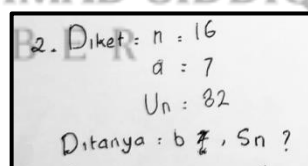 2. Diket : n : 16
a : 7
Un : 82
Ditanya : b , Sn ?